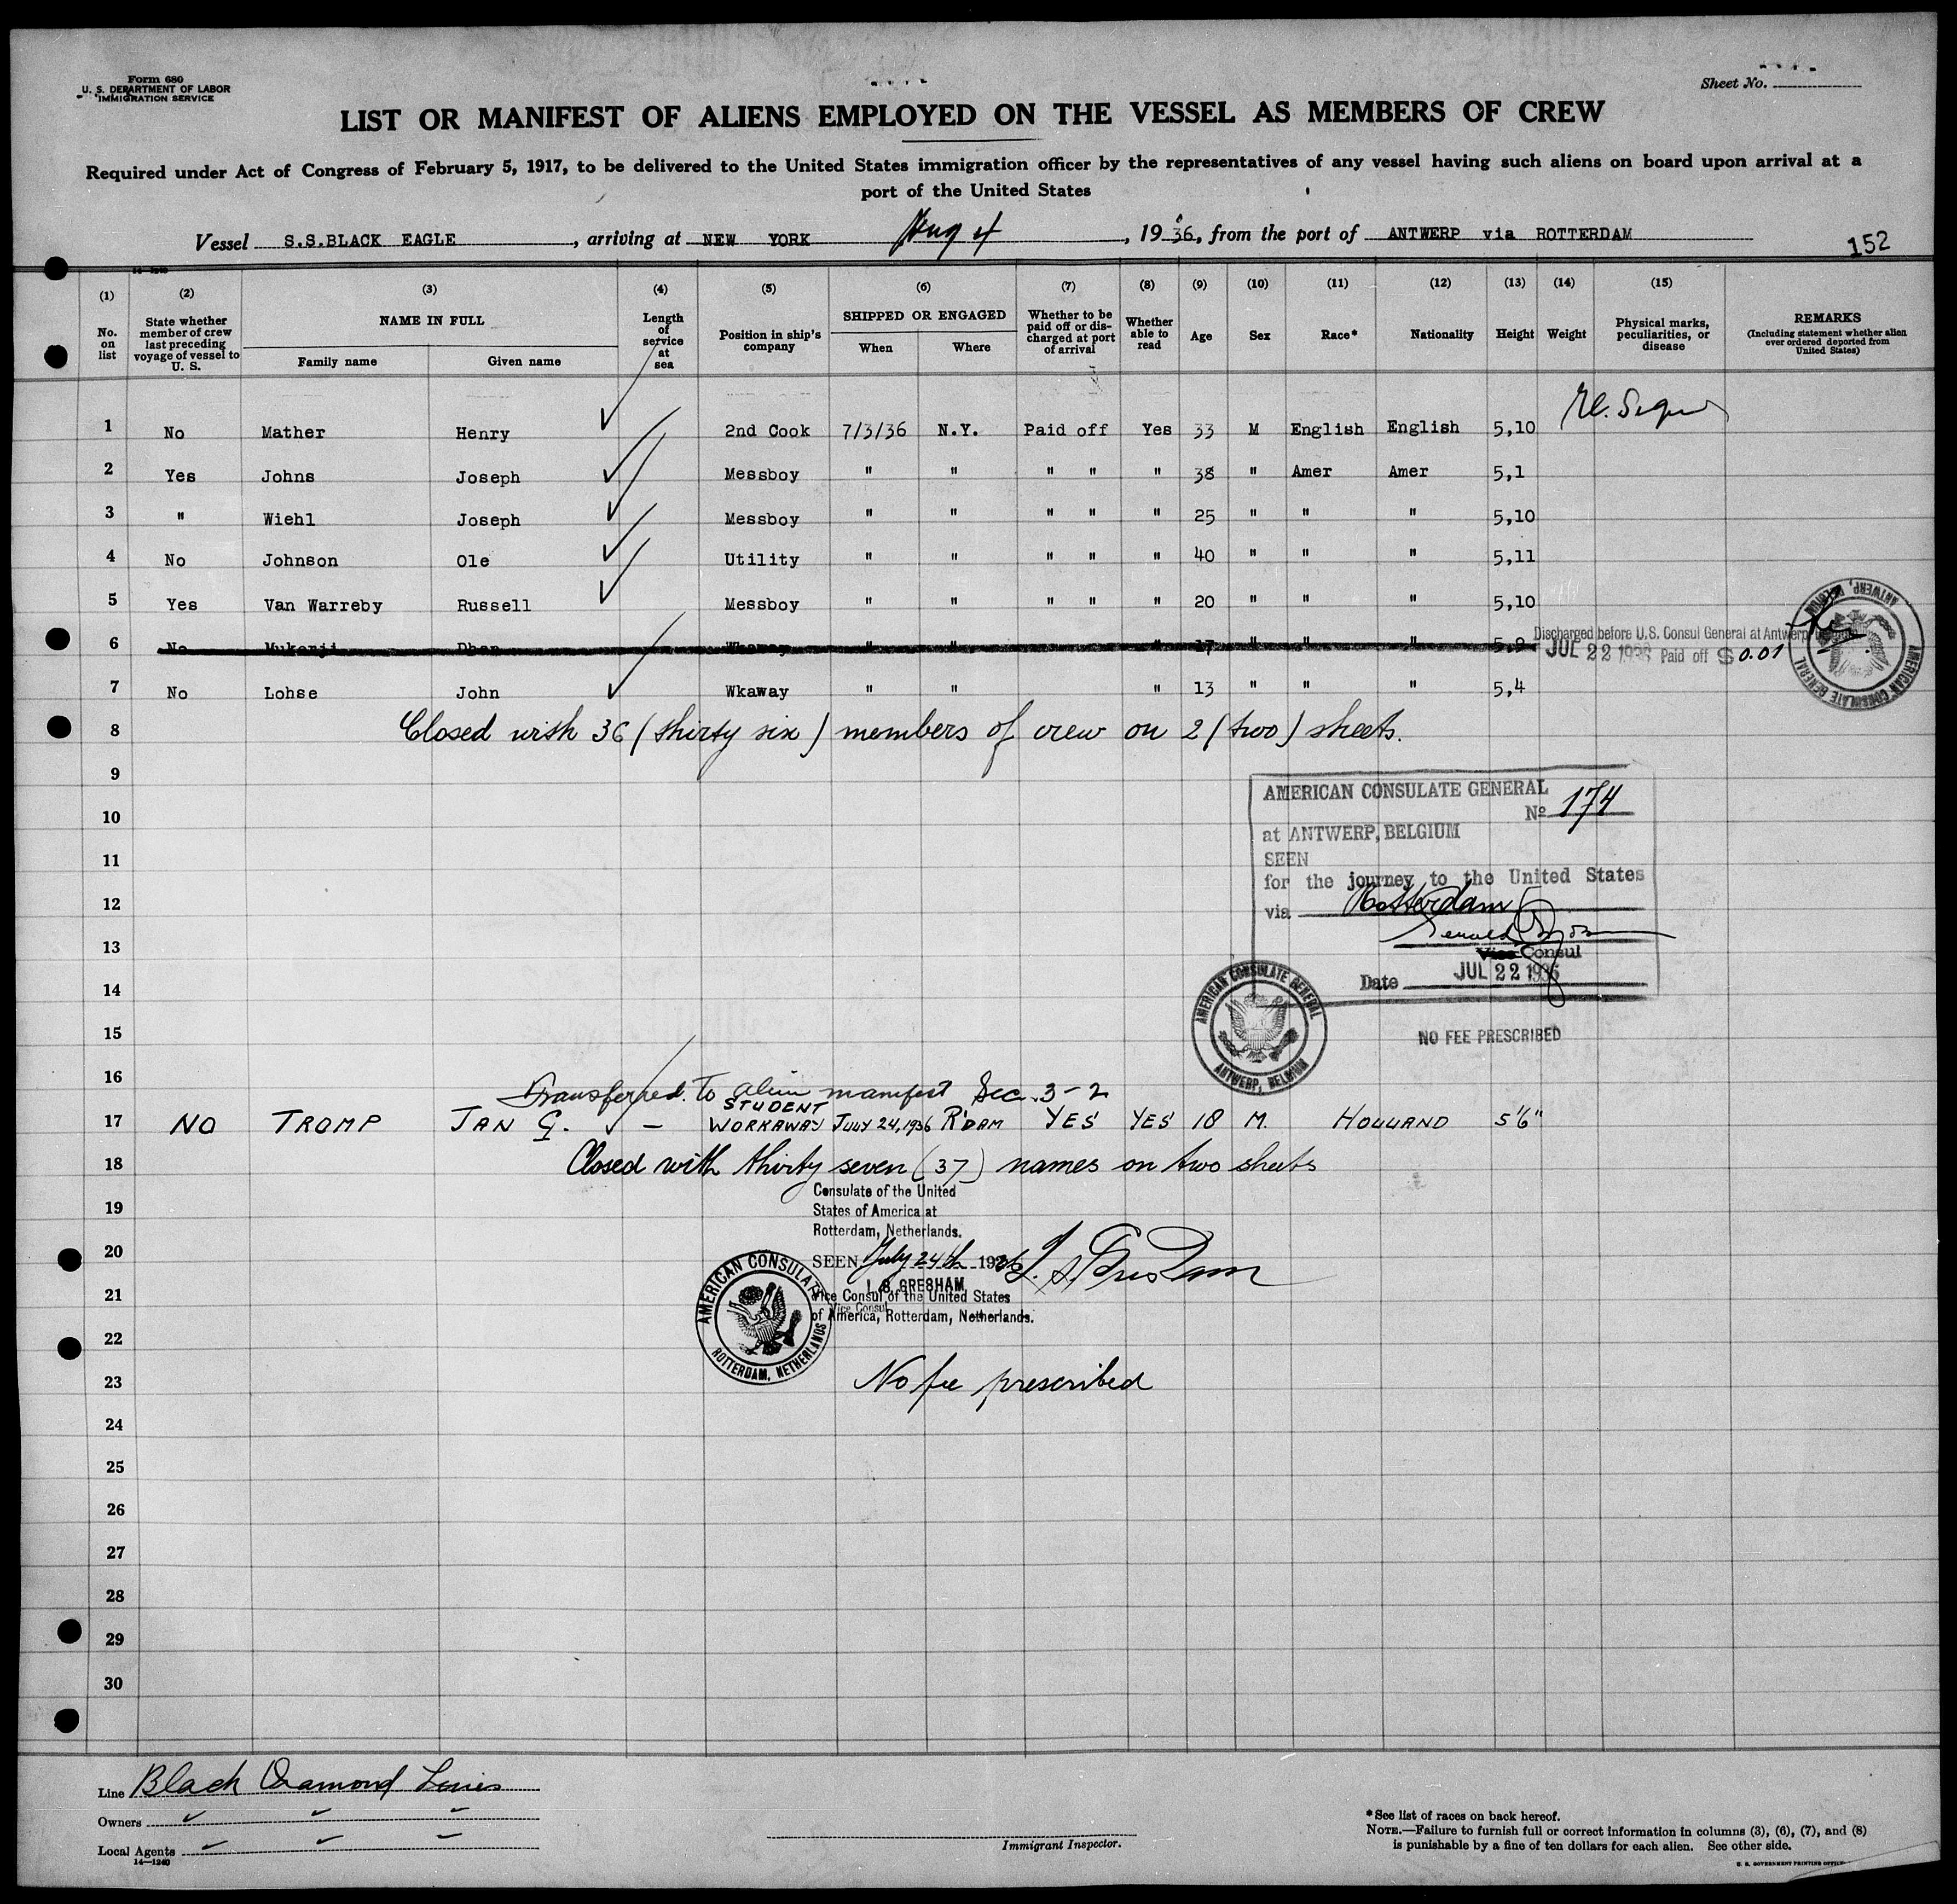 Form 680
U. S. DEPARTMENT OF LABOR
IMMIGRATION SERVICE
Sheet No.
LIST OR MANIFEST OF ALIENS EMPLOYED ON THE VESSEL AS MEMBERS OF CREW
Required under Act of Congress of February 5, 1917, to be delivered to the United States immigration officer by the representatives of any vessel having such aliens on board upon arrival at a
port of the United States
Vessel S.S.BLACK EAGLE, arriving at NEW YORK Aug 4, 1936, from the port of ANTWERP via ROTTERDAM
152
(1) (2) (3) (4) (5) (6) (7) (8) (9) (10) (11) (12) (13) (14) (15)
No. on list
State whether member of crew last preceding voyage of vessel to U. S.
NAME IN FULL
Family name Given name
Length of service at sea
Position in ship's company
SHIPPED OR ENGAGED
When Where
Whether to be paid off or discharged at port of arrival
Whether able to read
Age Sex Race* Nationality Height Weight
Physical marks, peculiarities, or disease
REMARKS
(Including statement whether alien ever ordered deported from United States)
1 No Mather Henry 2nd Cook 7/3/36 N.Y. Paid off Yes 33 M English English 5,10
2 Yes Johns Joseph Messboy " " " " " 38 " Amer Amer 5,1
3 " Wiehl Joseph Messboy " " " " " 25 " " " 5,10
4 No Johnson Ole Utility " " " " " 40 " " " 5,11
5 Yes Van Warreby Russell Messboy " " " " " 20 " " " 5,10
6 No Mukerji Dhan Wkaway " " " 17 " " " 5,9 Discharged before U.S. Consul General at Antwerp,
JUL 22 1936 Paid off $0.01
AMERICAN CONSULATE GENERAL
ANTWERP, BELGIUM
7 No Lohse John Wkaway " " " 13 " " " 5,4
8 Closed with 36 (thirty six) members of crew on 2 (two) sheets.
9
10
11
12
13
14
15
16
AMERICAN CONSULATE GENERAL
No 174
at ANTWERP, BELGIUM
SEEN
for the journey to the United States
via Rotterdam
Vice Consul
Date JUL 22 1936
AMERICAN CONSULATE GENERAL
ANTWERP, BELGIUM
NO FEE PRESCRIBED
Transferred to alien manifest Sec. 3-2
STUDENT
17 NO TROMP JAN G. – WORKAWAY JULY 24, 1936 R'DAM YES YES 18 M. HOLLAND 5'6"
18 Closed with thirty seven (37) names on two sheets
19
20
21
22
23
Consulate of the United
States of America at
Rotterdam, Netherlands.
SEEN July 24th 1936
GRESHAM
Vice Consul of the United States
Vice Consul
of America, Rotterdam, Netherlands.
AMERICAN CONSULATE
ROTTERDAM, NETHERLANDS
No fee prescribed
24
25
26
27
28
29
30
Line Black Diamond Lines
Owners
Local Agents
14—1240
Immigrant Inspector.
* See list of races on back hereof.
NOTE.—Failure to furnish full or correct information in columns (3), (6), (7), and (8)
is punishable by a fine of ten dollars for each alien. See other side.
U. S. GOVERNMENT PRINTING OFFICE